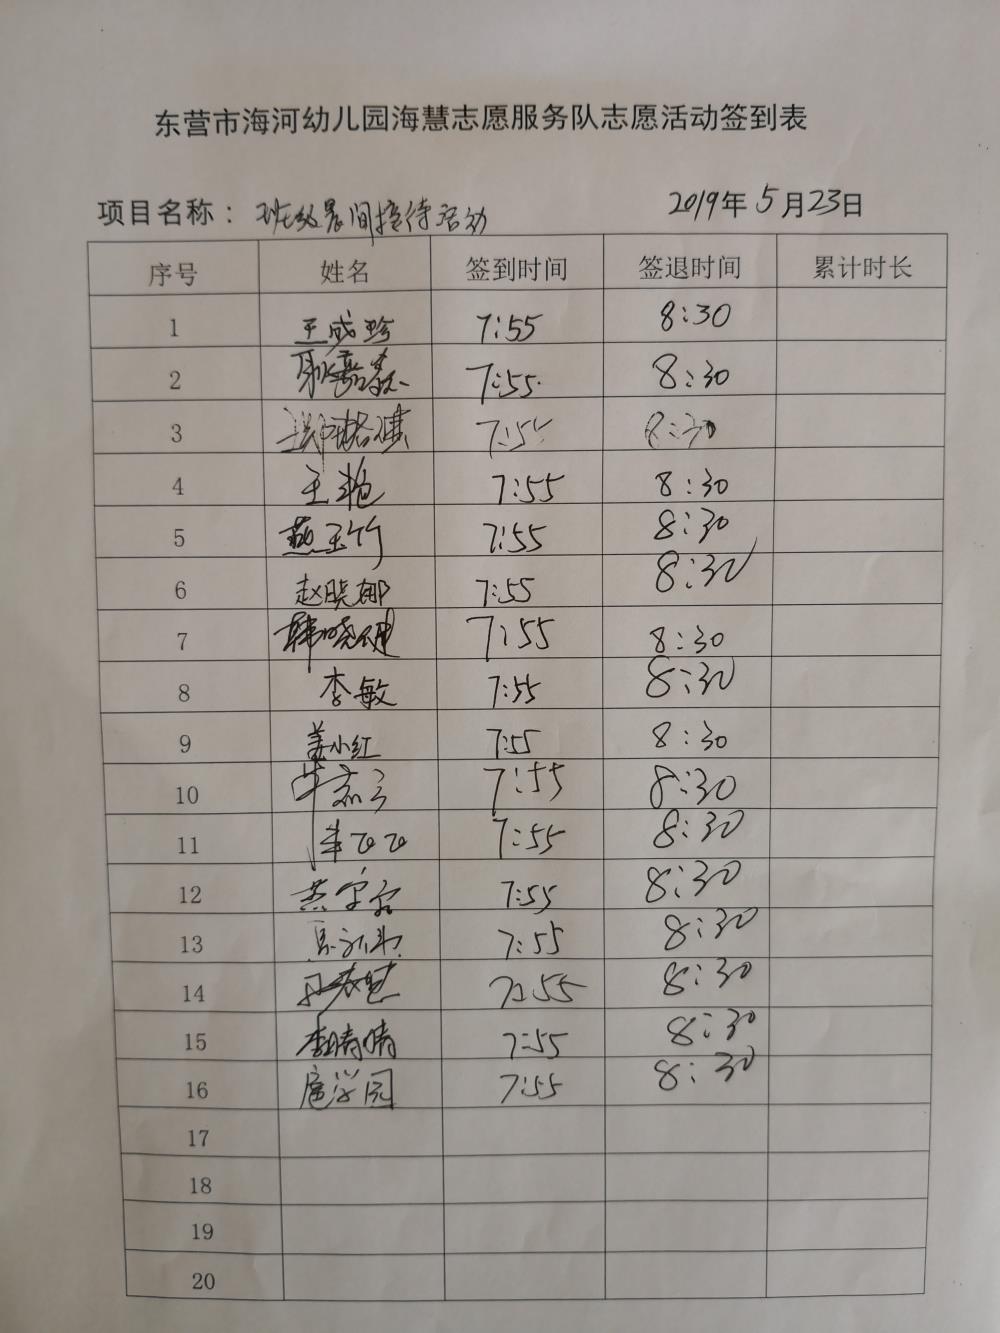 东营市海河幼儿园海慧志愿服务队志愿活动签到表
项目名称：班级晨间接待活动 2019年5月23日
序号 姓名 签到时间 签退时间 累计时长
1 王成珍 7:55 8:30
2 7:55 8:30
3 7:55 8:30
4 王艳 7:55 8:30
5 燕玉竹 7:55 8:30
6 赵晓娜 7:55 8:30
7 韩晓健 7:55 8:30
8 李敏 7:55 8:30
9 姜小红 7:55 8:30
10 7:55 8:30
11 7:55 8:30
12 7:55 8:30
13 7:55 8:30
14 7:55 8:30
15 李晴晴 7:55 8:30
16 扈学园 7:55 8:30
17
18
19
20